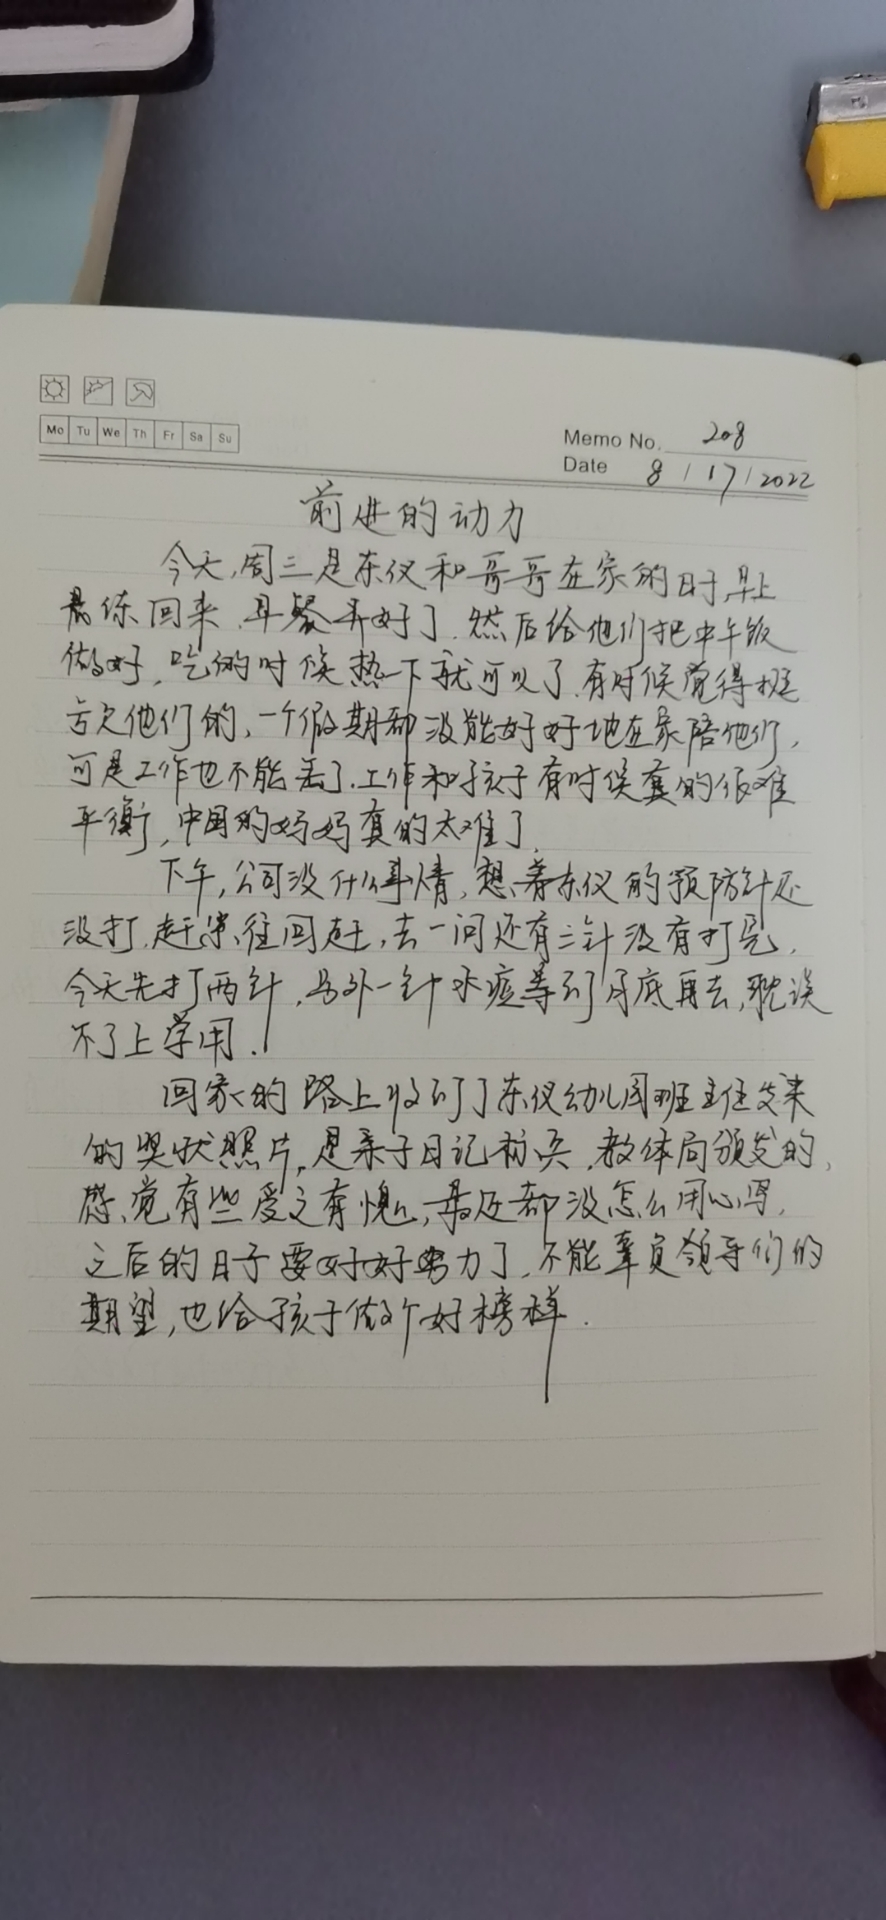 Mo Tu We Th Fr Sa Su
Memo No. 208
Date 8 / 17 / 2022
前进的动力
今天,周三是东仪和哥哥在家的日子,早上
晨练回来,早餐弄好了.然后给他们把中午饭
做好,吃的时候热一下就可以了.有时候觉得挺
亏欠他们的,一个假期都没能好好地在家陪他们,
可是工作也不能丢了.工作和孩子有时候真的很难
平衡,中国的妈妈真的太难了.
下午,公司没什么事情,想着东仪的预防针还
没打,赶紧往回赶,去一问还有三针没有打完,
今天先打两针,另外一针水痘等到月底再去,耽误
不了上学用.
回家的路上收到了东仪幼儿园班主任发来
的奖状照片,是亲子日记标兵,教体局颁发的,
感觉有些受之有愧,最近都没怎么用心写,
之后的日子要好好努力了,不能辜负领导们的
期望,也给孩子做个好榜样.